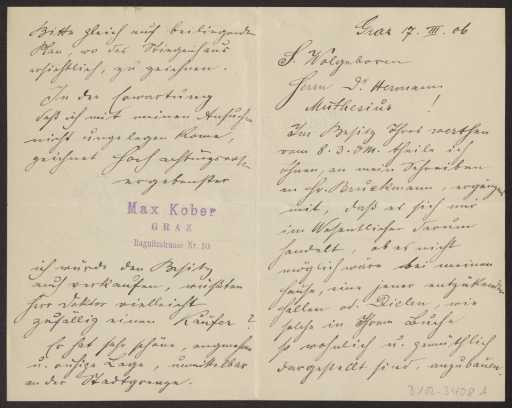 Graz 7. III. 06
S. Wolgeboren
Herrn Dr Hermann
Muthesius !
Im Besitz Ihres werthen
vom 8.3. theile ich
Ihnen, an mein Schreiben
an Hr. Bruckmann, ergänzend
mit, daß es sich nur
im Wesentlichen darum
handelt, ob es nicht
möglich wäre bei meinem
Hause, eine jener entzückenden
Hallen od. Dielen, wie
solche in Ihrem Buche
so wohnlich u. gemüthlich
dargestellt sind, anzubauen.
Bitte gleich auf beiliegenden
Plan, wo das Stiegenhaus
ersichtlich, zu zeichnen.
In der Erwartung
daß ich mit meinem Ansuchen
nicht ungelegen komme,
zeichnet Hochachtungsvollst
ergebenster
Max Kober
GRAZ
Ragnitzstrasse Nr. 10
ich würde den Besitz
auch verkaufen, wüßten
Herr Doktor vielleicht
zufällig einen Käufer?
Er hat sehr schöne, angenehme
u. ruhige Lage, unmittelbar
an der Stadtgrenze.